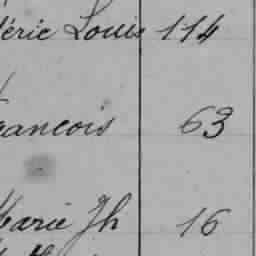 érie Louis 114
rancois 63
Marie Jh 16